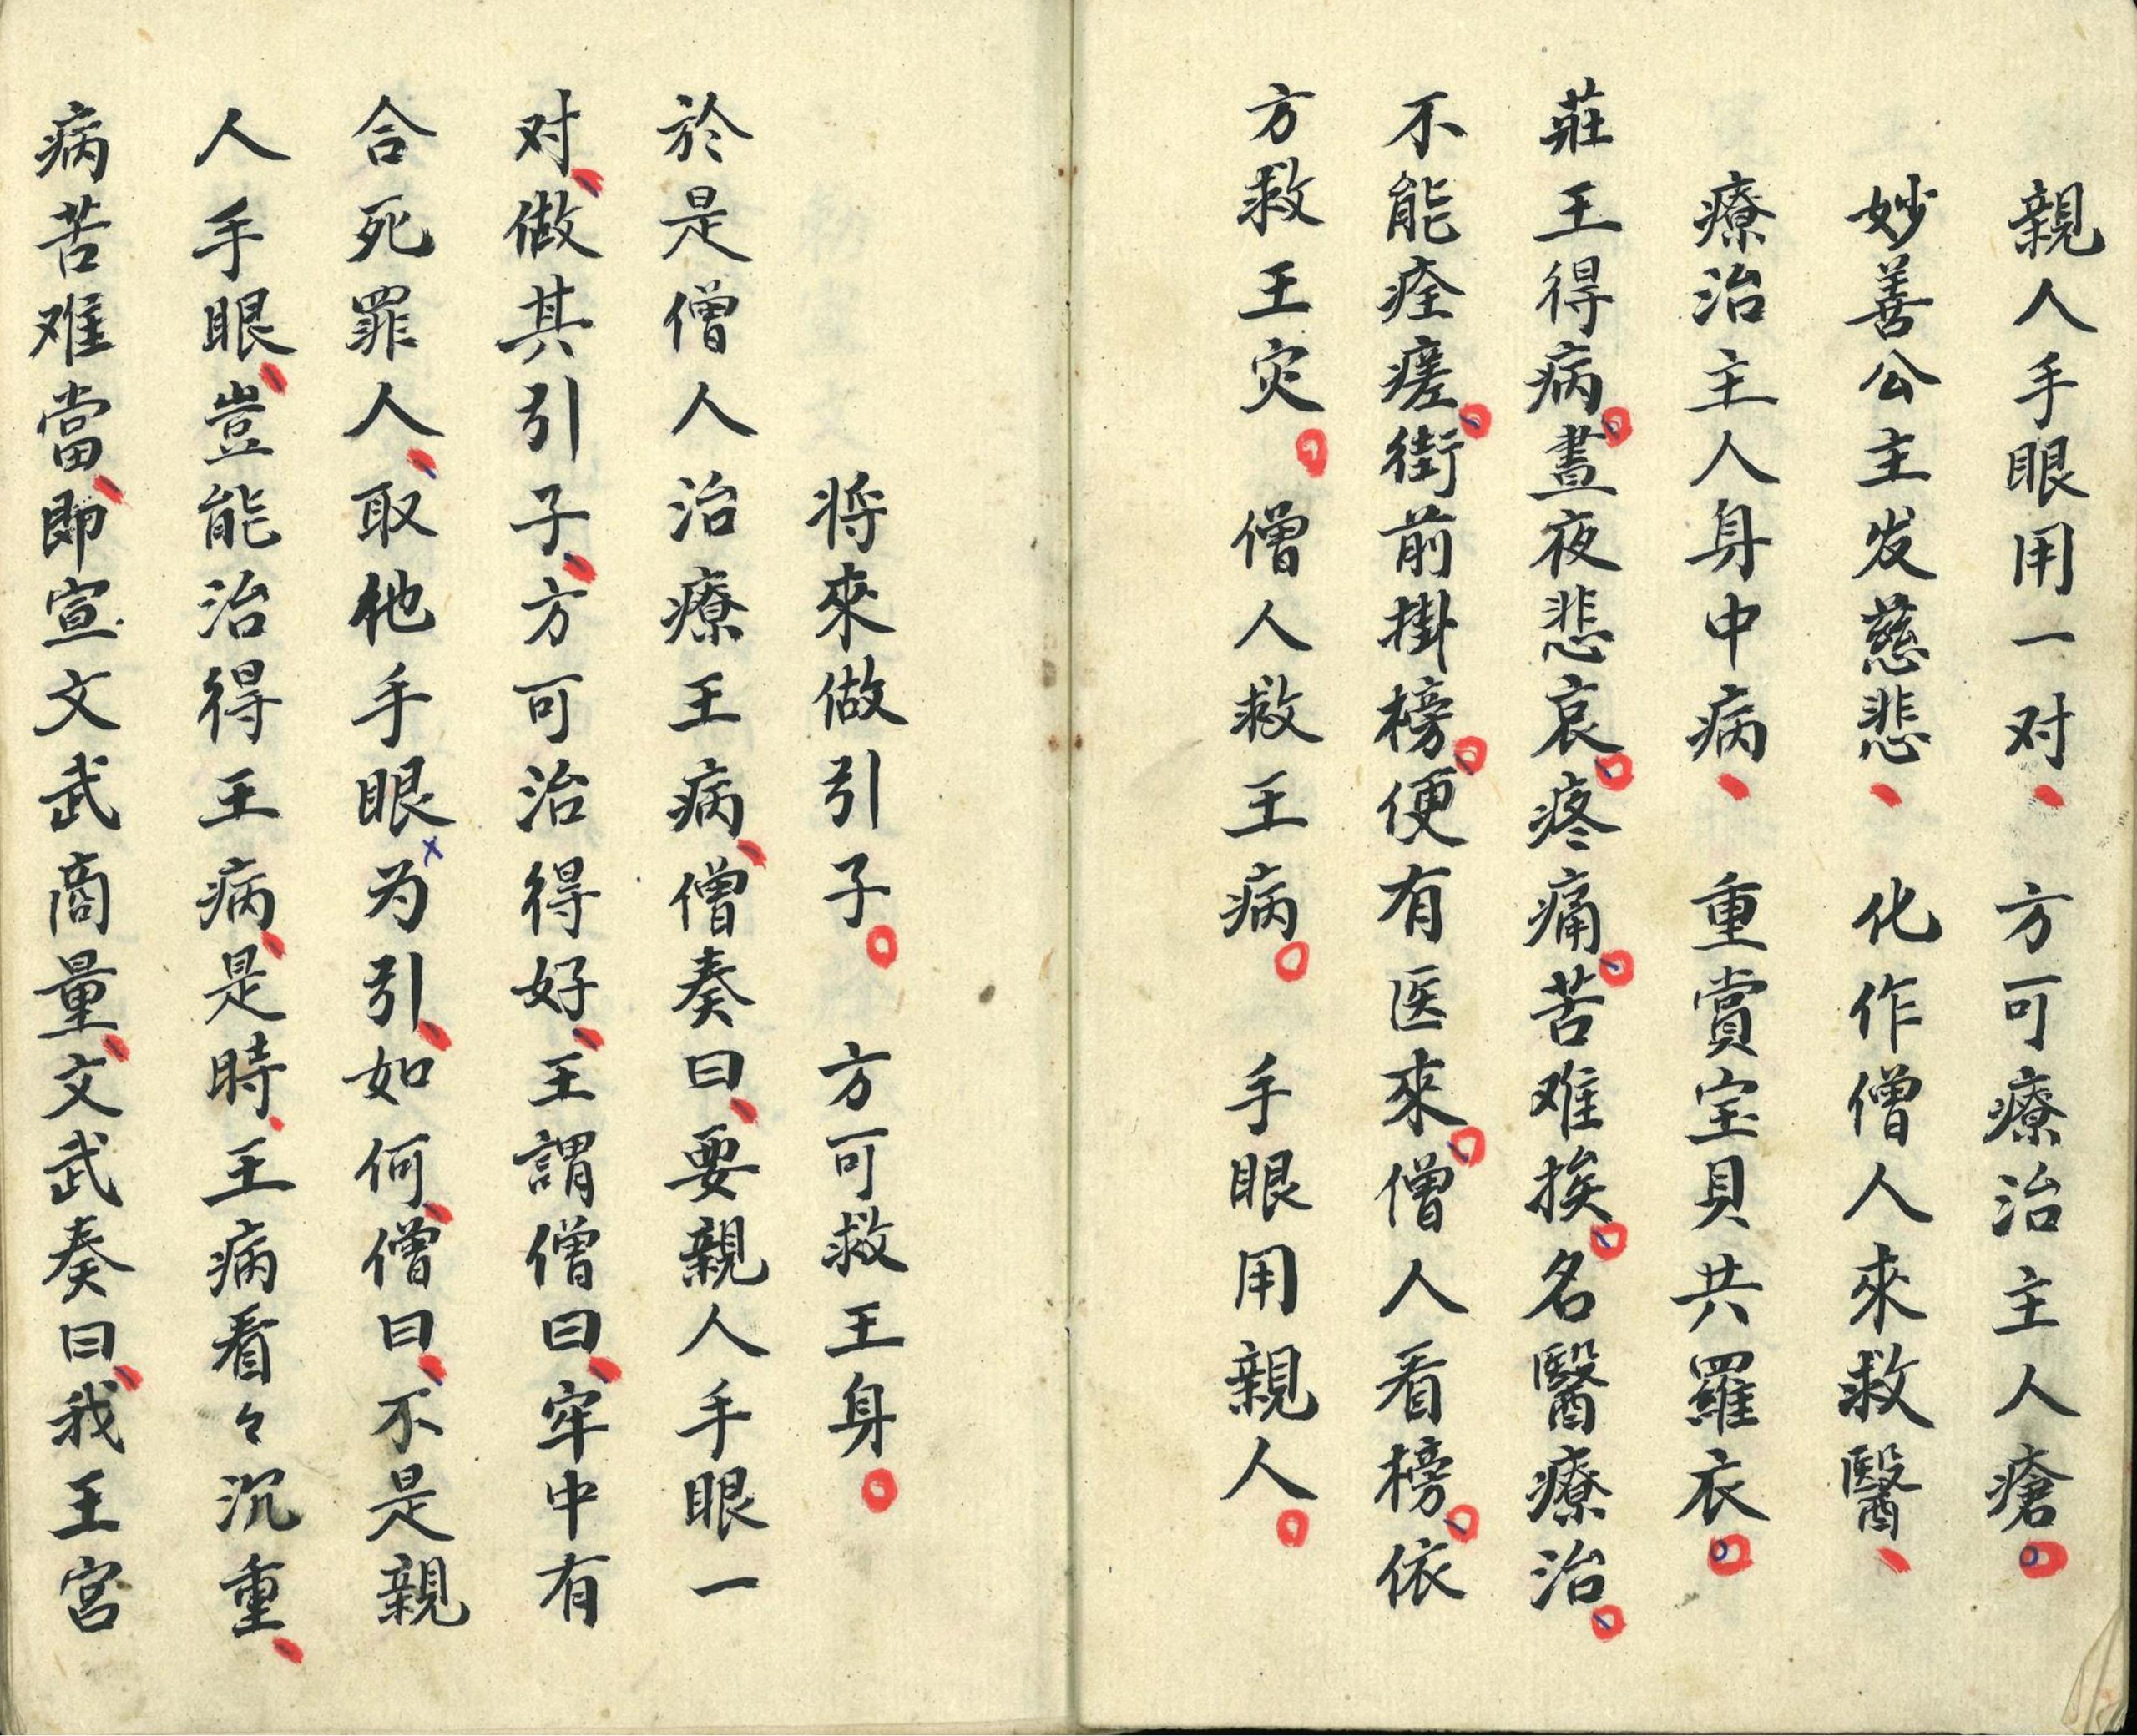 親人手眼用一对、方可療治主人瘡。
妙善公主发慈悲、化作僧人來救醫、
療治主人身中病、重賞宝貝共羅衣。
莊王得病。晝夜悲哀。疼痛。苦难挨。名醫療治。
不能痊瘥。街前掛榜。便有医來。僧人看榜。依
方救王灾。僧人救王病。手眼用親人。
将來做引子。方可救王身。
於是僧人治療王病、僧奏曰、要親人手眼一
对、做其引子、方可治得好、王謂僧曰、牢中有
合死罪人、取他手眼为引、如何、僧曰、不是親
人手眼、豈能治得王病、是時、王病看々沉重、
病苦难當、即宣文武商量、文武奏曰、我王宮